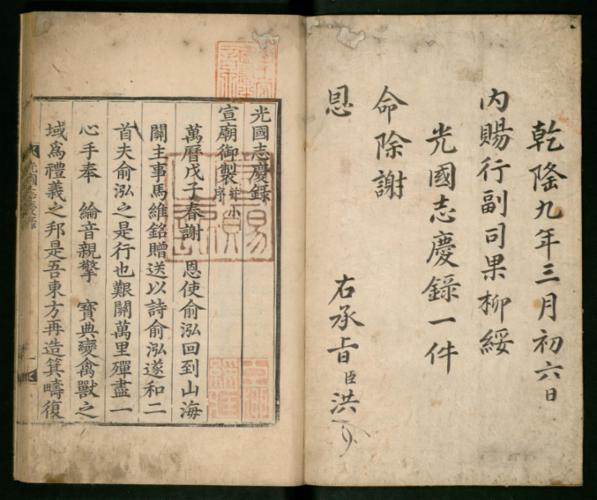 乾隆九年三月初六日
内賜行副司果柳綏
光國志慶錄一件
命除謝
恩
右承旨臣洪
光國志慶錄
宣廟御製 並小序
萬曆戊子春謝 恩使俞泓回到山海
關主事馬維銘贈送以詩俞泓遂和二
首夫俞泓之是行也艱關萬里殫盡一
心手奉 綸音親擎 寶典變禽獸之
域為禮義之邦是吾東方再造箕疇復